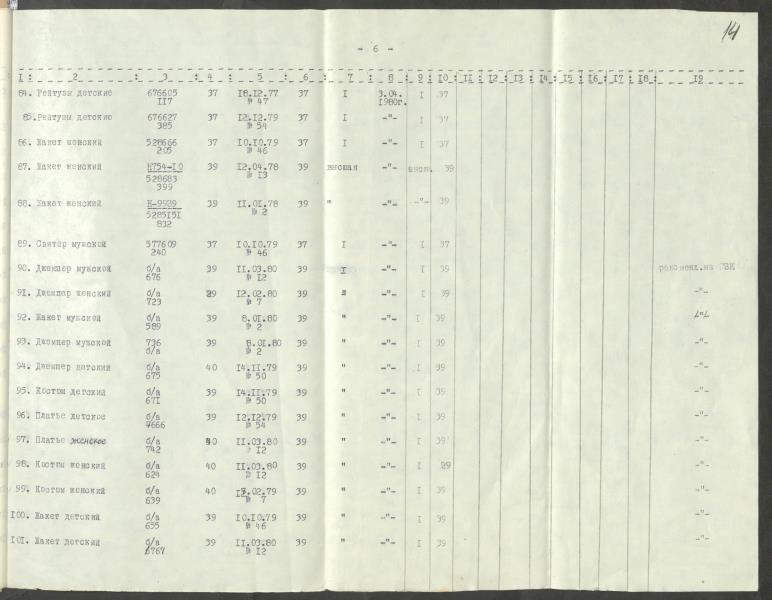 141
- 6 -
I : 2 : 3 : 4 : 5 : 6 : 7 : 8 : 9 : 10 : II : I2 : I3 : I4 : I5 : I6 : I7 : I8 : I9
84. Рейтузы детские 676605 37 I8.I2.77 37 I 3.04. I 37
II7 № 47 I980г.
85. Рейтузы детские 676627 37 I2.I2.79 37 I -"- I 37
385 № 54
86. Жакет женский 528666 37 I0.I0.79 37 I -"- I 37
205 № 46
87. Жакет женский Н754-I0 39 I2.04.78 39 высшая -"- высш. 39
528683 № I3
399
88. Жакет женский Н-9939 39 II.0I.78 39 " -"- -"- 39
5285I5I № 2
832
89. Свитер мужской 577609 37 I0.I0.79 37 I -"- I 37
240 № 46
90. Джемпер мужской б/а 39 II.03.80 39 I -"- I 39 рекоменд.на
676 № I2
91. Джемпер женский б/а 39 I2.02.80 39 " -"- I 39 -"-
723 № 7
92. Жакет мужской б/а 39 8.0I.80 39 " -"- I 39 -"-
589 № 2
93. Джемпер мужской 736 39 8.0I.80 39 " -"- I 39 -"-
б/а № 2
94. Джемпер детский б/а 40 I4.II.79 39 " -"- I 39 -"-
675 № 50
95. Костюм детский б/а 39 I4.II.79 39 " -"- I 39 -"-
67I № 50
96. Платье детское б/а 39 I2.I2.79 39 " -"- I 39 -"-
666 № 54
97. Платье женское б/а 40 II.03.80 39 " -"- I 39 -"-
742 № I2
98. Костюм женский б/а 40 II.03.80 39 " -"- I 39 -"-
624 № I2
99. Костюм женский б/а 40 02.79 39 " -"- I 39 -"-
639 № 7
I00. Жакет детский б/а 39 I0.I0.79 39 " -"- I 39 -"-
655 № 46
I0I. Жакет детский б/а 39 II.03.80 39 " -"- I 39 -"-
767 № I2